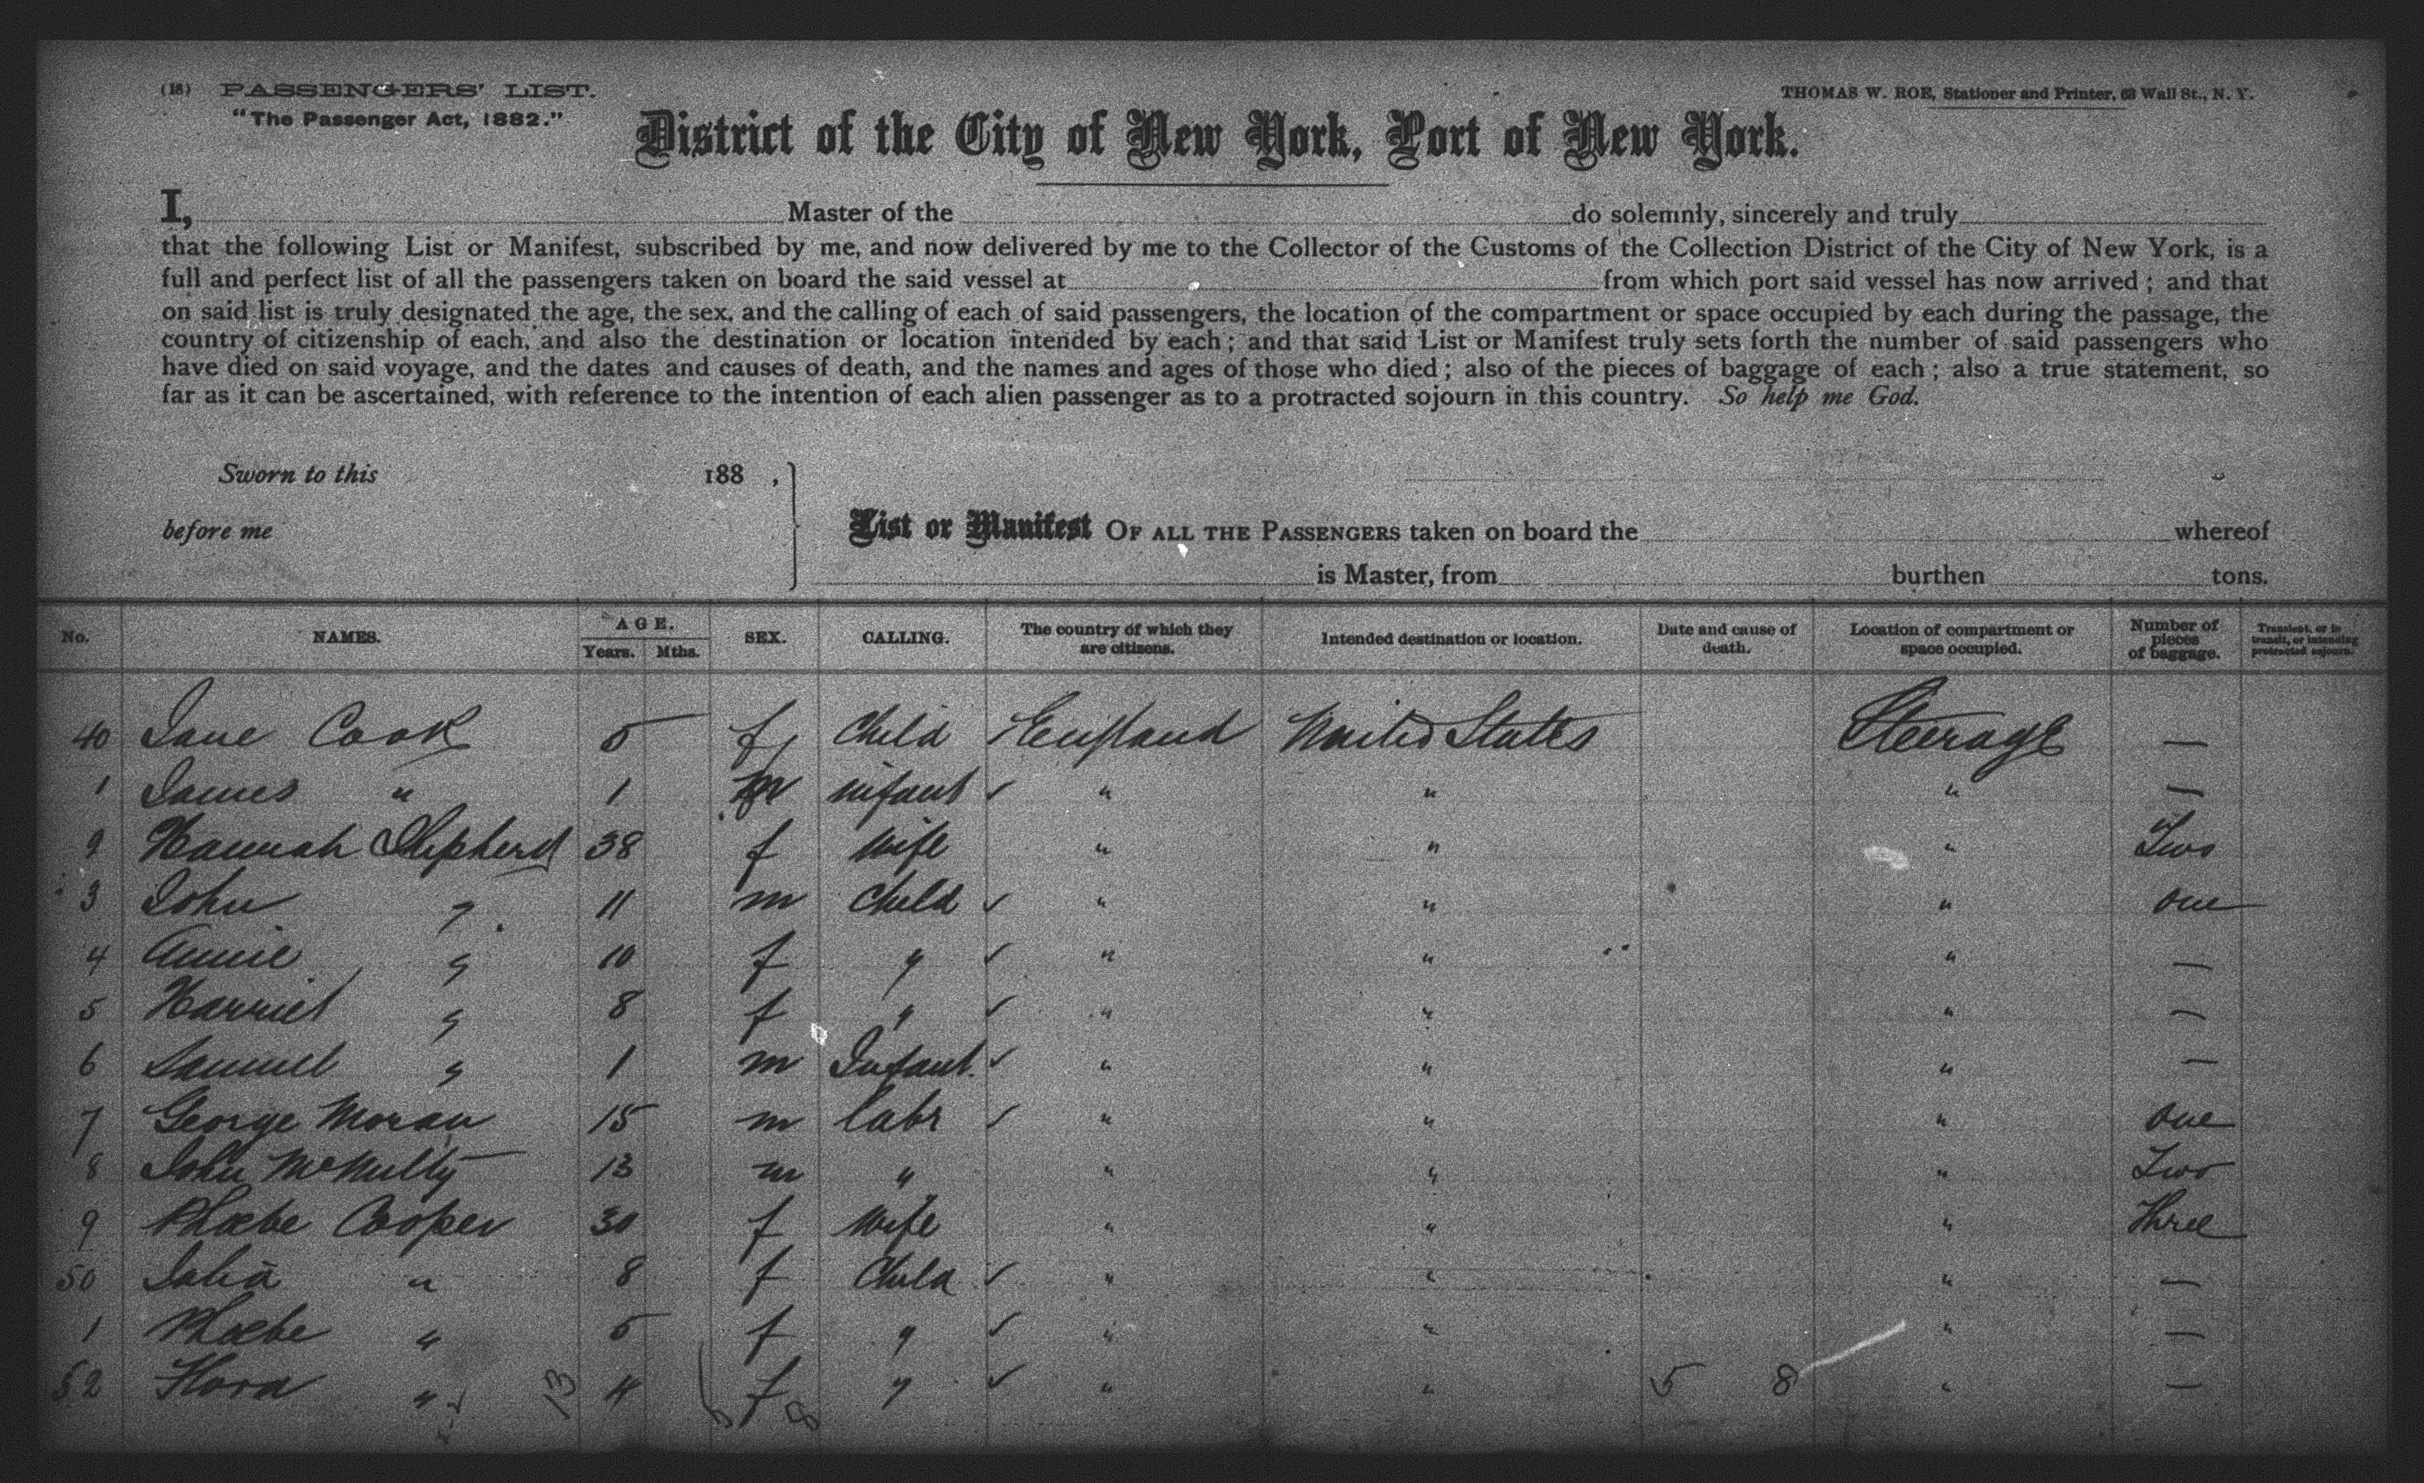 (18) PASSENGERS' LIST. THOMAS W. ROE, Stationer and Printer, 63 Wall St., N. Y.
"The Passenger Act, 1882."
District of the City of New York, Port of New York.
I, Master of the do solemnly, sincerely and truly
that the following List or Manifest, subscribed by me, and now delivered by me to the Collector of the Customs of the Collection District of the City of New York, is a
full and perfect list of all the passengers taken on board the said vessel at from which port said vessel has now arrived; and that
on said list is truly designated the age, the sex, and the calling of each of said passengers, the location of the compartment or space occupied by each during the passage, the
country of citizenship of each, and also the destination or location intended by each; and that said List or Manifest truly sets forth the number of said passengers who
have died on said voyage, and the dates and causes of death, and the names and ages of those who died; also of the pieces of baggage of each; also a true statement, so
far as it can be ascertained, with reference to the intention of each alien passenger as to a protracted sojourn in this country. So help me God.
Sworn to this 188 ,
before me
List or Manifest OF ALL THE PASSENGERS taken on board the whereof
is Master, from burthen tons.
No. NAMES. AGE. Years. Mths. SEX. CALLING. The country of which they are citizens. Intended destination or location. Date and cause of death. Location of compartment or space occupied. Number of pieces of baggage. Transient, or in transit, or intending protracted sojourn.
40 Jane Cook 5 f Child England United States Steerage —
1 James " 1 m infant ✓ " " " —
2 Hannah Shepherd 38 f Wife " " " Two
3 John " 11 m Child ✓ " " " one
4 Annie " 10 f " ✓ " " " —
5 Harriet " 8 f " ✓ " " " —
6 Samuel " 1 m Infant ✓ " " " —
7 George Moran 15 m labr ✓ " " " one
8 John McNulty 13 m " " " " Two
9 Phœbe Cooper 30 f Wife " " " Three
50 Julia " 8 f Child ✓ " " " —
1 Phœbe " 5 f " ✓ " " " —
52 Flora " 13 4 f 8 " ✓ " " 5 8 " —